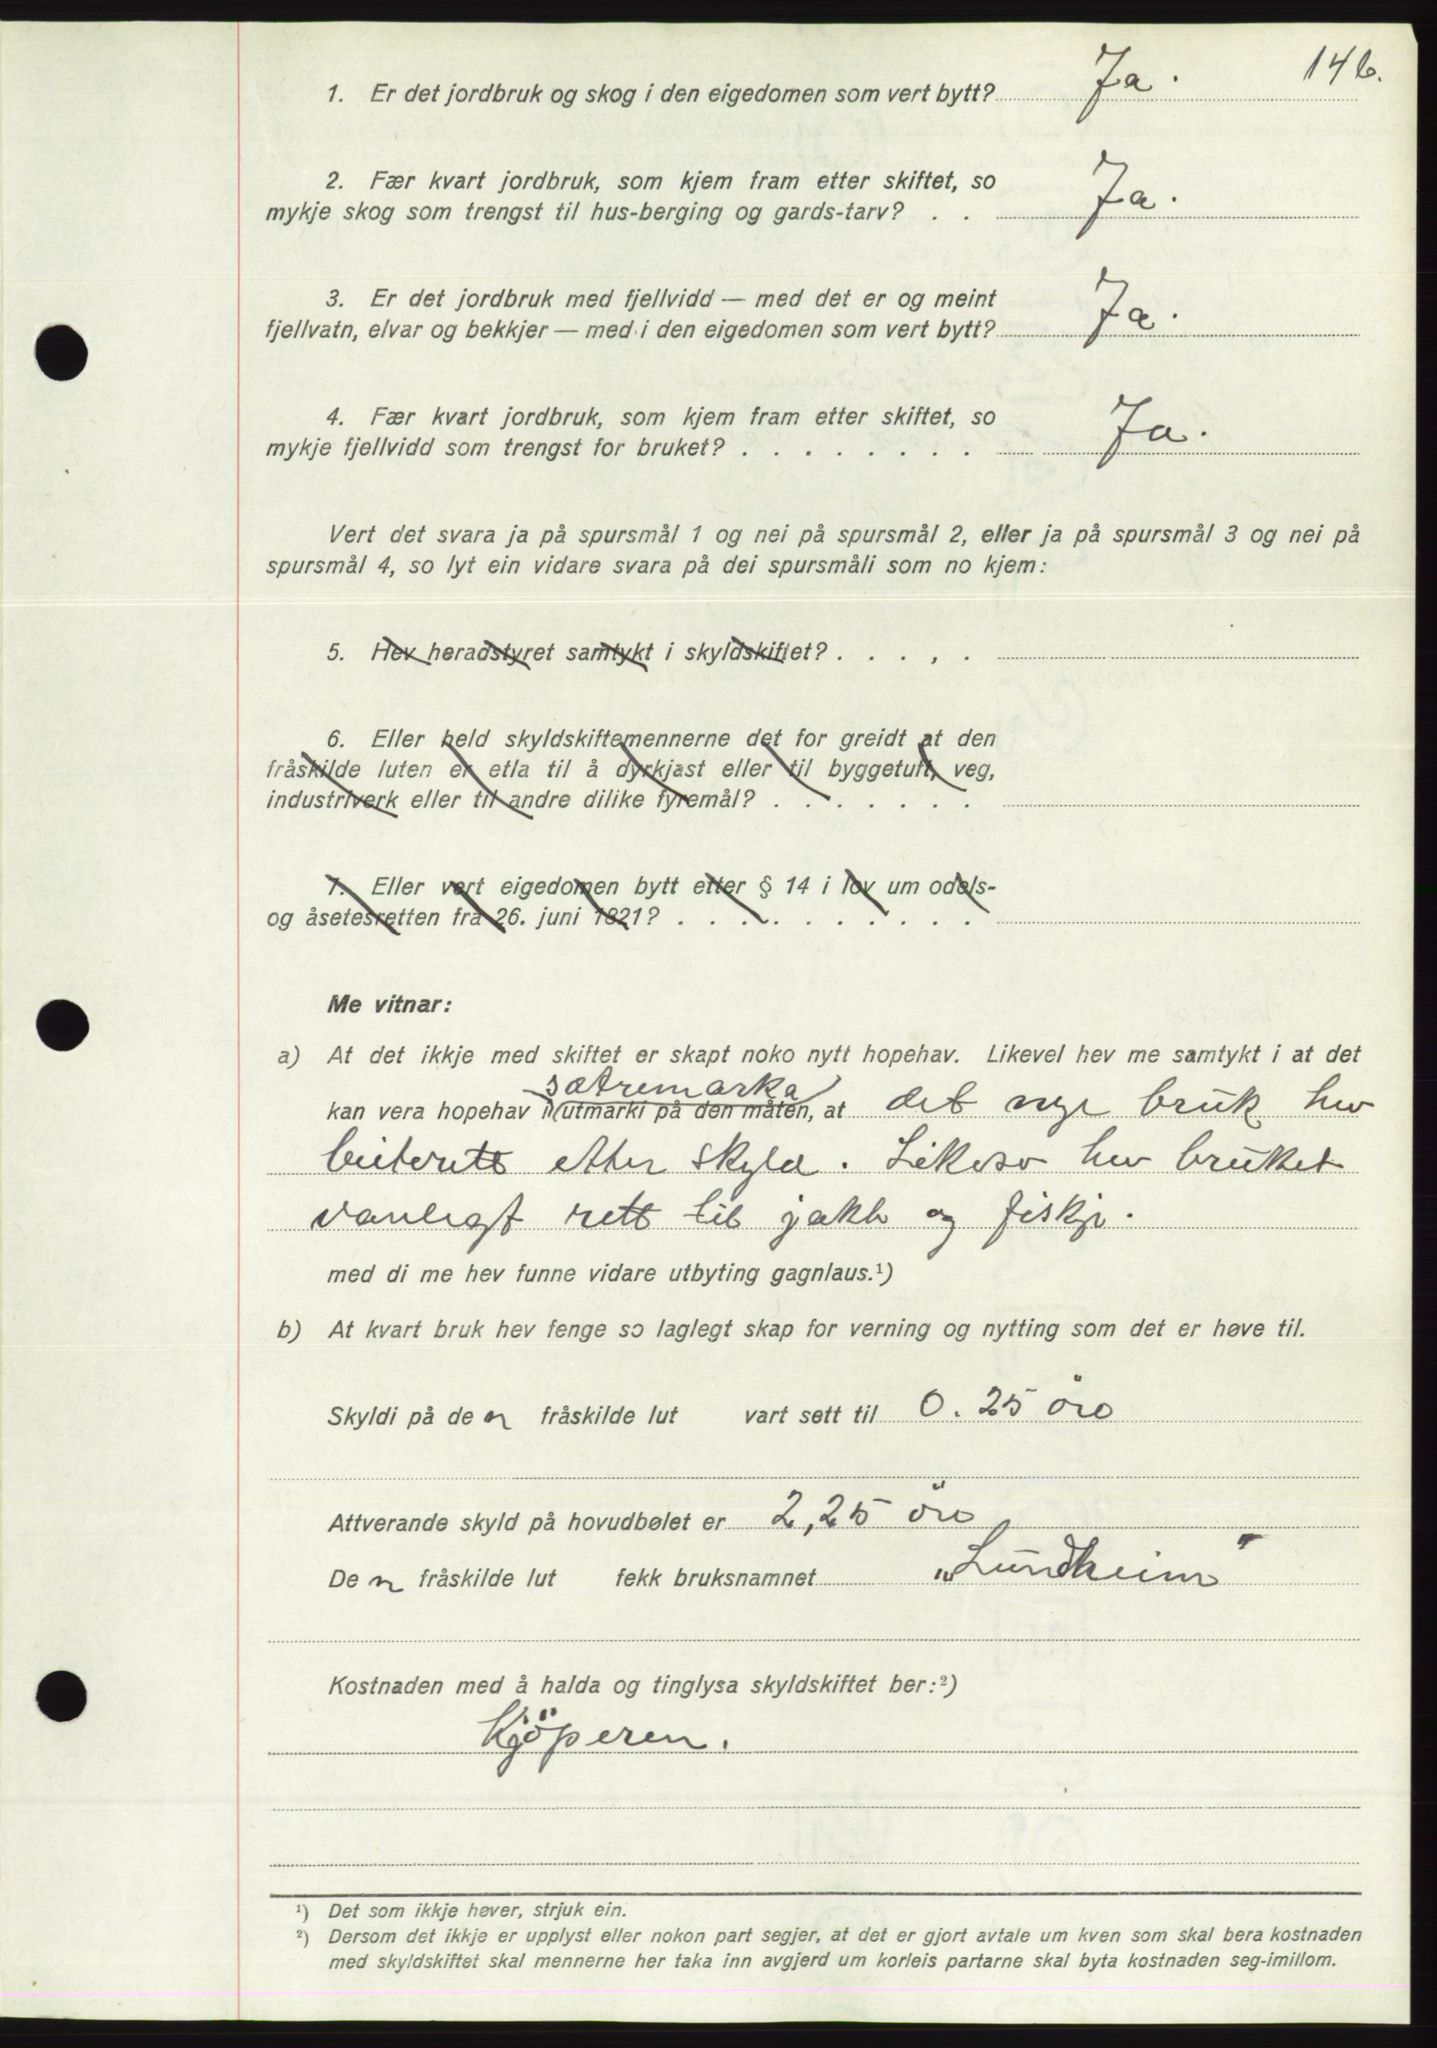 146.
1. Er det jordbruk og skog i den eigedomen som vert bytt? Ja.
2. Fær kvart jordbruk, som kjem fram etter skiftet, so
mykje skog som trengst til hus-berging og gards-tarv? . . Ja.
3. Er det jordbruk med fjellvidd — med det er og meint
fjellvatn, elvar og bekkjer — med i den eigedomen som vert bytt? Ja.
4. Fær kvart jordbruk, som kjem fram etter skiftet, so
mykje fjellvidd som trengst for bruket? . . . . . . . . Ja.
Vert det svara ja på spursmål 1 og nei på spursmål 2, eller ja på spursmål 3 og nei på
spursmål 4, so lyt ein vidare svara på dei spursmåli som no kjem:
5. Hev heradstyret samtykt i skyldskiftet? . . . , .
6. Eller held skyldskiftemennerne det for greidt at den
fråskilde luten er etla til å dyrkjast eller til byggetuft, veg,
industriverk eller til andre dilike fyremål? . . . . . . .
7. Eller vert eigedomen bytt etter § 14 i lov um odels-
og åsetesretten frå 26. juni 1821? . . . . . . . . . .
Me vitnar:
a) At det ikkje med skiftet er skapt noko nytt hopehav. Likevel hev me samtykt i at det
sætremarka
kan vera hopehav i utmarki på den måten, at det nye bruk hev
beiterett etter skyld. Likeso hev bruket
vanlegt rett til jakt og fiskje.
med di me hev funne vidare utbyting gagnlaus.¹)
b) At kvart bruk hev fenge so laglegt skap for verning og nytting som det er høve til.
Skyldi på den fråskilde lut vart sett til 0.25 öre
Attverande skyld på hovudbølet er 2,25 öre
Den fråskilde lut fekk bruksnamnet „Lundheim"
Kostnaden med å halda og tinglysa skyldskiftet ber:²)
Kjöperen.
¹) Det som ikkje høver, strjuk ein.
²) Dersom det ikkje er upplyst eller nokon part segjer, at det er gjort avtale um kven som skal bera kostnaden
med skyldskiftet skal mennerne her taka inn avgjerd um korleis partarne skal byta kostnaden seg-imillom.